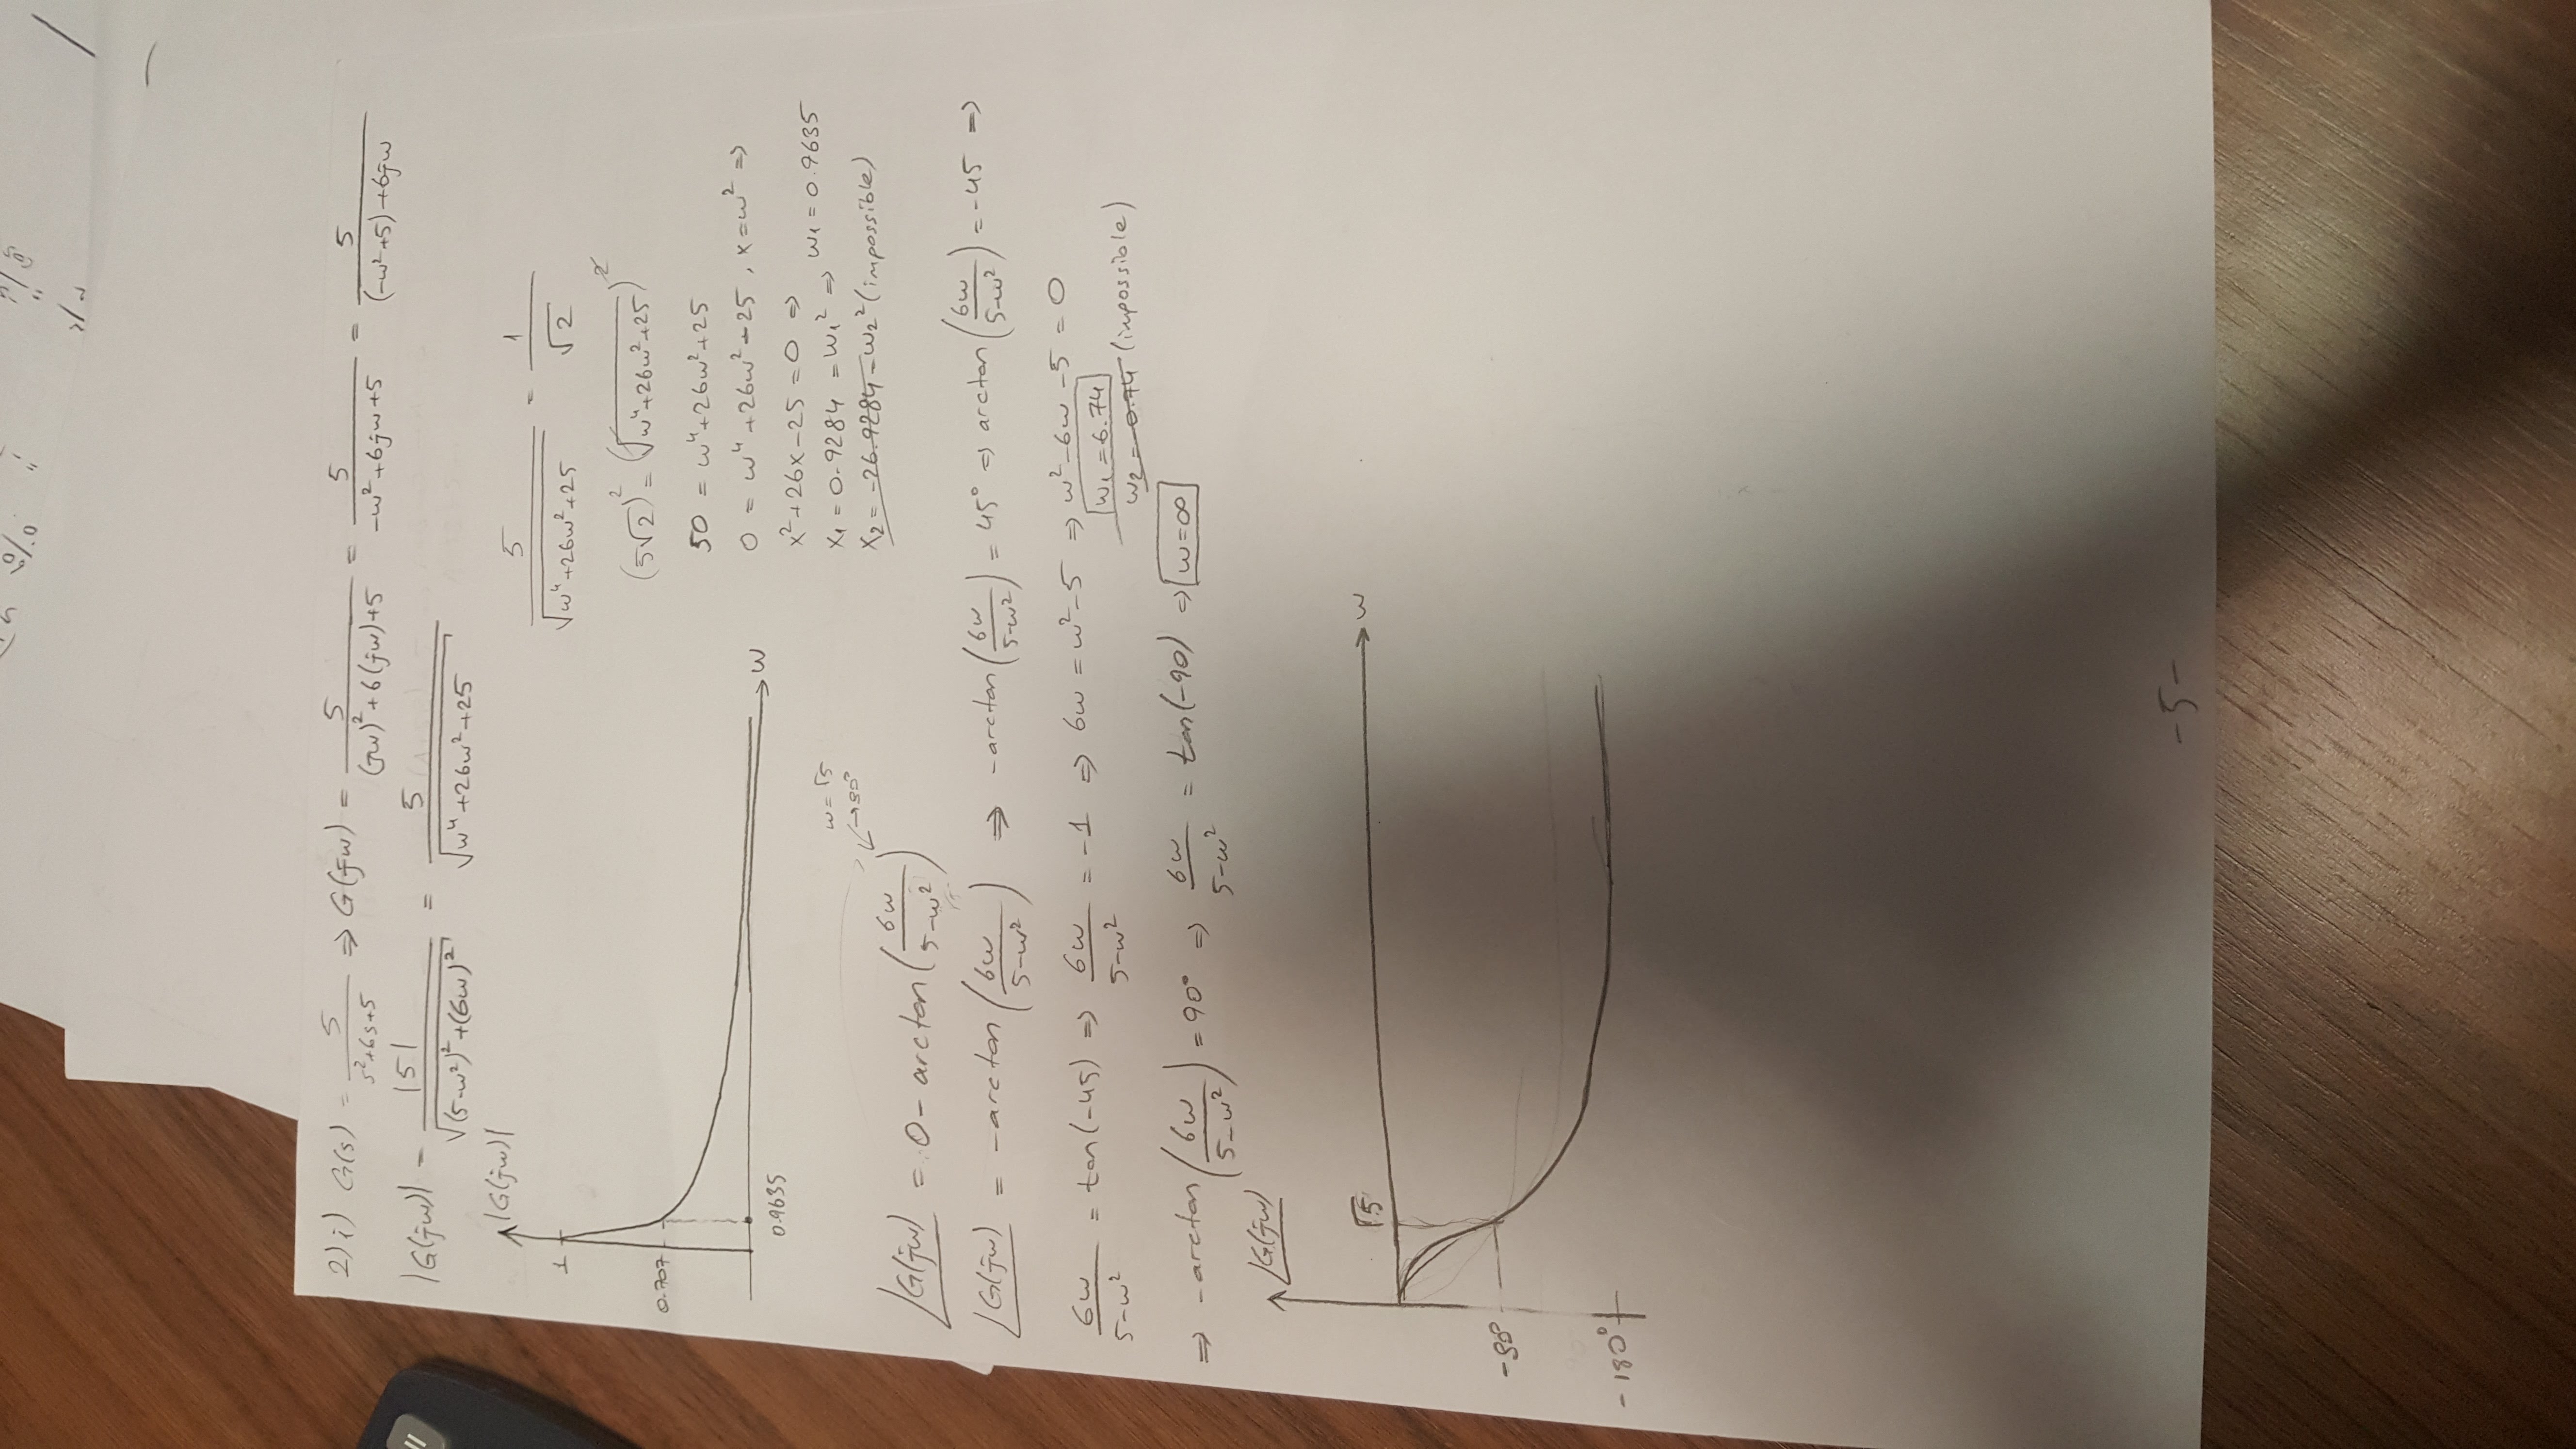 2) i) G(s) = 5/(s²+6s+5) ⇒ G(jw) = 5/((jw)²+6(jw)+5) = 5/(-w²+6jw+5) = 5/((-w²+5)+6jw)
|G(jw)| = |5|/√((5-w²)²+(6w)²) = 5/√(w⁴+26w²+25)
|G(jw)|
1
0.707
0.9635
w
5/√(w⁴+26w²+25) = 1/√2
(5√2)² = (√(w⁴+26w²+25))²
50 = w⁴+26w²+25
0 = w⁴+26w²-25, x=w² ⇒
x²+26x-25=0 ⇒
x₁=0.9284=w₁² ⇒ w₁=0.9635
x₂=-26.9284=w₂² (impossible)
w=√5
→90°
∠G(jw) = 0-arctan(6w/(5-w²))
∠G(jw) = -arctan(6w/(5-w²)) ⇒ -arctan(6w/(5-w²)) = 45° ⇒ arctan(6w/(5-w²)) = -45 ⇒
6w/(5-w²) = tan(-45) ⇒ 6w/(5-w²) = -1 ⇒ 6w = w²-5 ⇒ w²-6w-5 = 0
w₁=6.74
w₂=-0.74 (impossible)
⇒ -arctan(6w/(5-w²)) = 90° ⇒ 6w/(5-w²) = tan(-90) ⇒ w=∞
∠G(jw)
√5
w
-90°
-180°
-5-